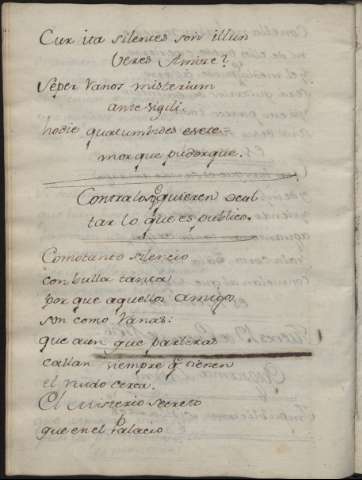 Cur ita silentes son illun
veres Amore?
Seper Vanos misterium
ante vigili.
hodie quatumbides esete
mor que pudorque.
Contra los q quieren ocul
tar lo que es publico.
Como tanto silencio
con bulla tanta
por que aquellos Amigo
son como Vanas:
que aun que parleras
callan siempre q tienen
el ruido cerca.
El misterio secreto
que en el Palacio